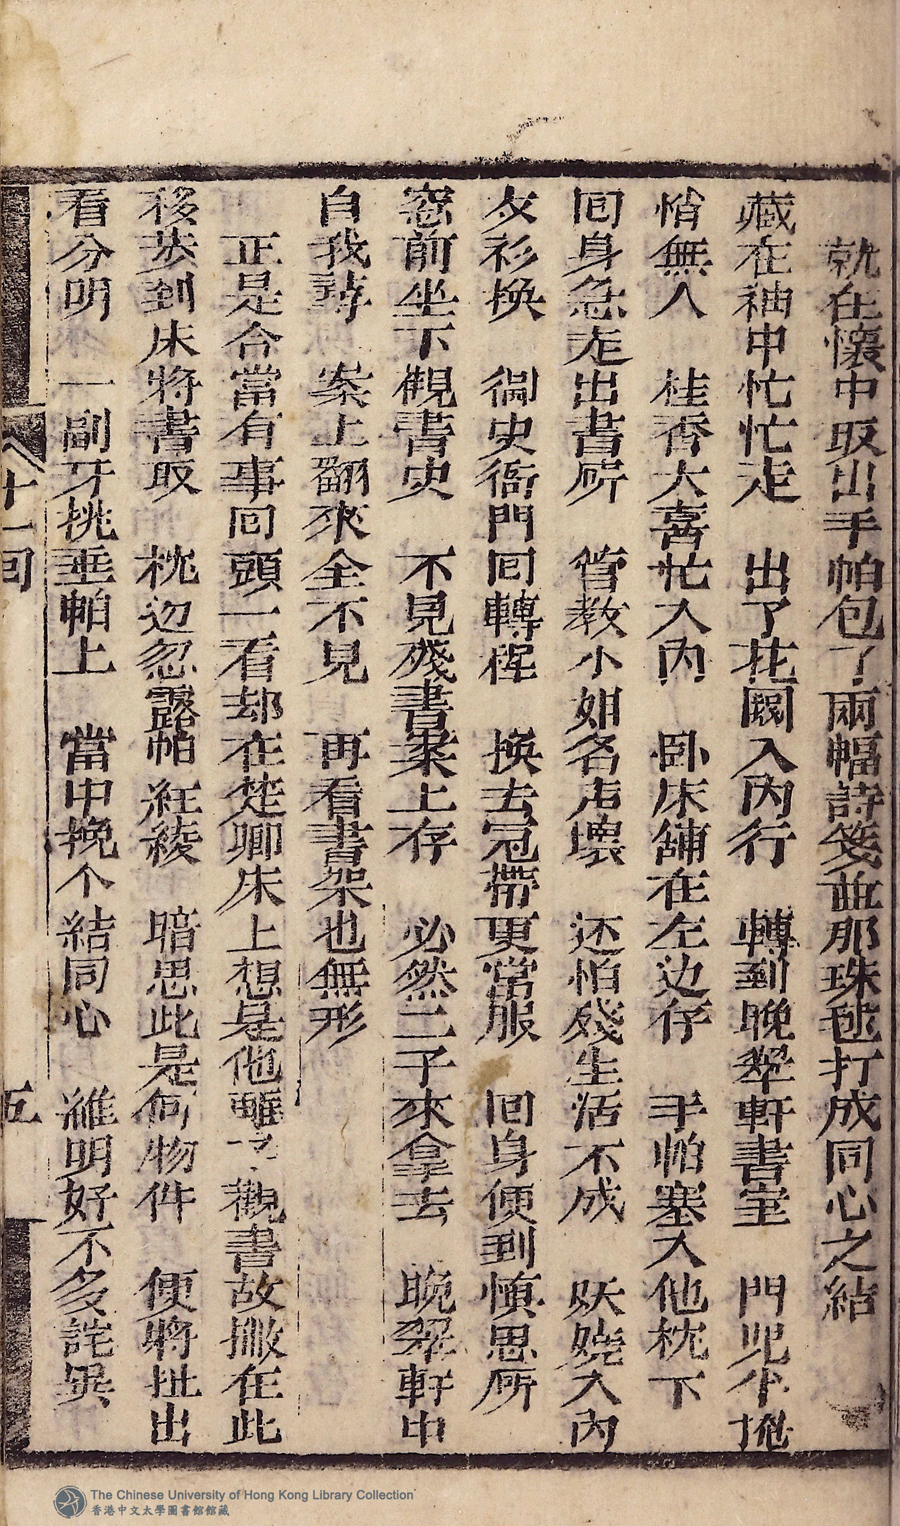 就在懷中取出手帕包了兩幅詩箋並那珠毬打成同心之結
藏在袖中忙忙走 出了花園入內行 轉到晚翠軒書室 門児半掩
悄無人 桂香大喜忙入內 卧床舖在左边存 手帕塞入他枕下
囘身急走出書所 管教小姐名声壊 还怕残生活不成 妖娆入內
衣衫换 御史衙門囘轉程 换去冠帶更常服 囘身便到慎思所
窓前坐下觀書史 不見殘書案上存 必然二子來拿去 晩翠軒中
自我尋 案上翻來全不見 再看書架也無形
正是合當有事囘頭一看却在楚卿床上想是他睡了觀書故撇在此
移步到床將書取 枕边忽露帕紅綾 暗思此是何物件 便將扯出
看分明 一副牙挑垂帕上 當中挽个結同心 維明好不多詫異
十一囘
五
The Chinese University of Hong Kong Library Collection
香港中文大學圖書館館藏